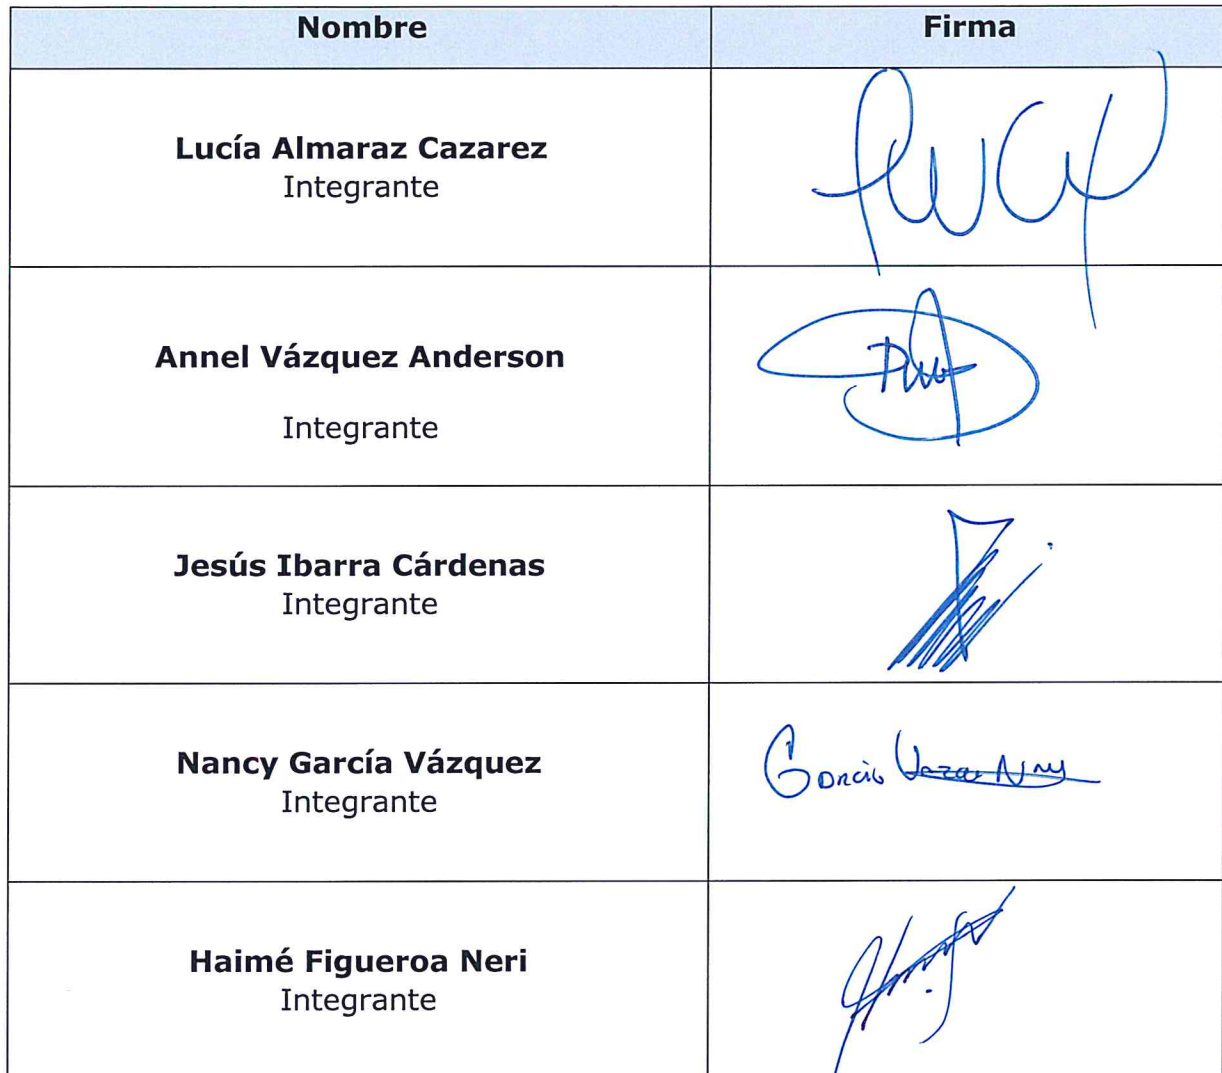 Nombre Firma
Lucía Almaraz Cazarez
Integrante
Annel Vázquez Anderson
Integrante
Jesús Ibarra Cárdenas
Integrante
Nancy García Vázquez
Integrante
Haimé Figueroa Neri
Integrante